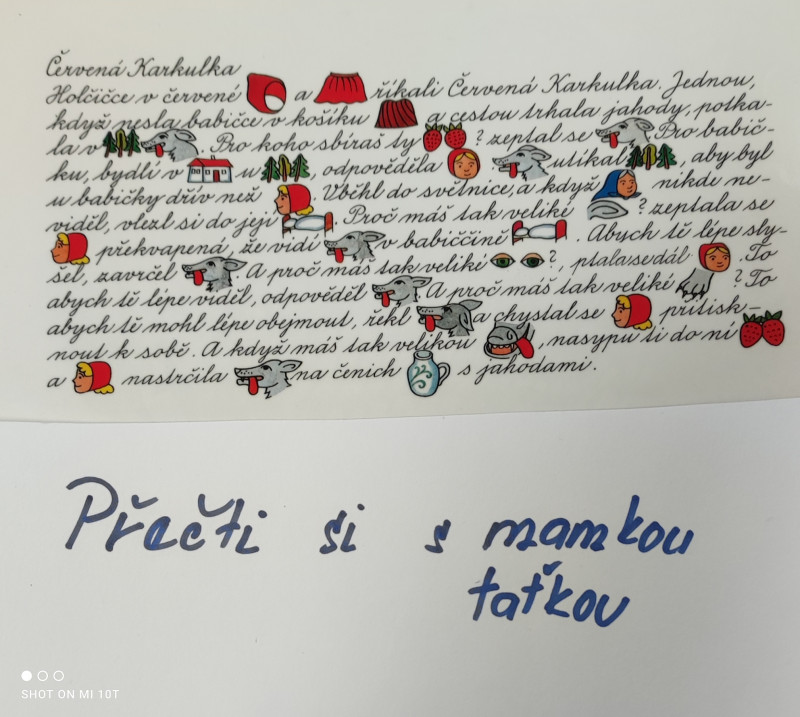 Červená Karkulka
Holčičce v červené a říkali Červená Karkulka. Jednou,
když nesla babičce v košíku a cestou trhala jahody, potka-
la v . Pro koho sbíráš ty ? zeptal se Pro babič-
ku, bydlí v u , odpověděla utíkal , aby byl
u babičky dřív než . Vběhl do světnice, a když nikde ne-
viděl, vlezl si do její . Proč máš tak veliké ? zeptala se
překvapená, že vidí v babiččině . Abych tě lépe sly-
šel, zavrčel . A proč máš tak veliké ?, ptala se dál . To
abych tě lépe viděl, odpověděl . A proč máš tak veliké ? To
abych tě mohl lépe obejmout, řekl a chystal se přitisk-
nout k sobě. A když máš tak velikou , nasypu ti do ní
a nastrčila na čenich s jahodami.
Přečti si s mamkou
taťkou
SHOT ON MI 10T